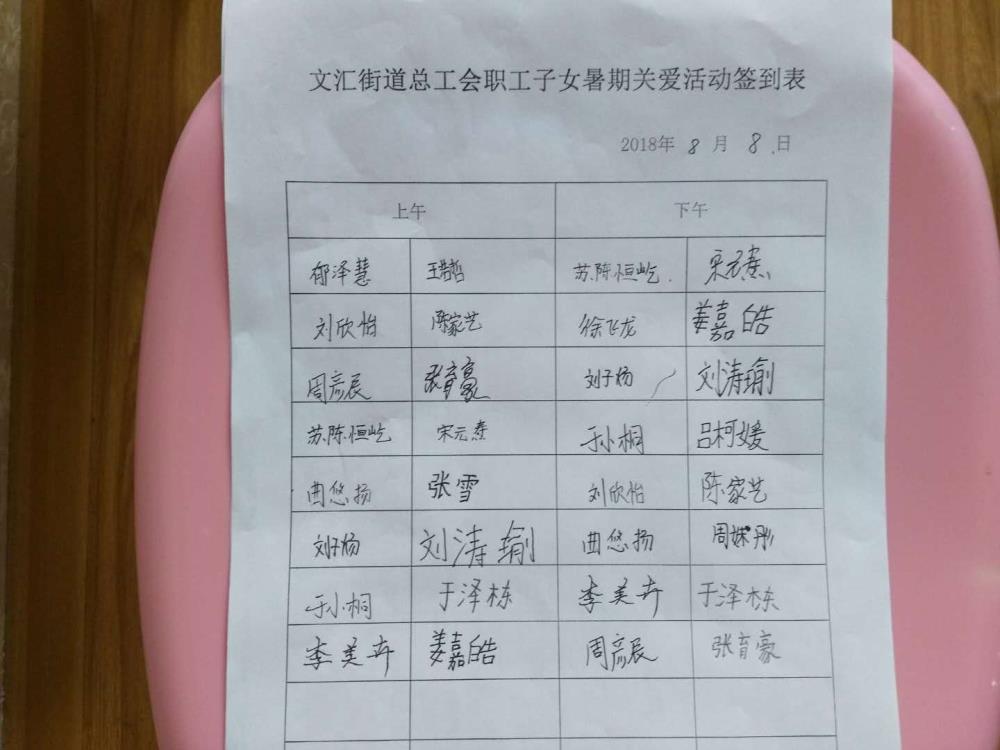 文汇街道总工会职工子女暑期关爱活动签到表
2018年 8 月 8 日
上午 下午
郁泽慧 王浩哲 苏陈恒屹 宋元焘
刘欣怡 陈家艺 徐飞龙 姜嘉皓
周彦辰 张育豪 刘子杨 刘涛瑜
苏陈恒屹 宋元焘 于小桐 吕柯媛
曲悠扬 张雪 刘欣怡 陈家艺
刘子杨 刘涛瑜 曲悠扬 周姝彤
于小桐 于泽栋 李美卉 于泽栋
李美卉 姜嘉皓 周彦辰 张育豪